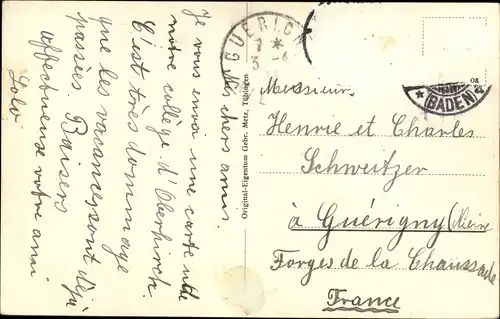 Mis chers amis.
Je vous envoi une carte de
notre collège d'Oberkirch.
C'est très dommage
que les vacances sont déjà
passées Baisers
affectueuse votre ami
Lolo
GUERIG
7 *
3 -4
Original-Eigentum Gebr. Metz, Tübingen
* (BADEN)
Messieurs
Henrie et Charles
Schweitzer
à Guérigny (Nièvre
Forges de la Chaussade
France